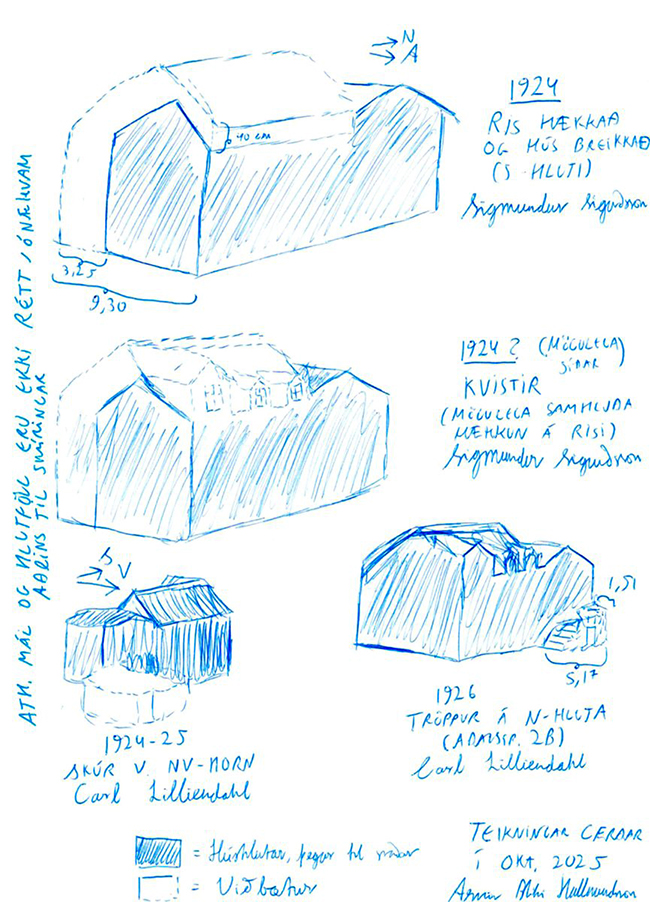 N
A
1924
RIS HÆKKAÐ
OG HÚS BREIKKAÐ
(S-HLUTI)
Sigmundur Sigurðsson
40 CM
3,25
9,30
ATH. MÁL OG HLUTFÖLL ERU EKKI RÉTT, ÓNÁKVÆM
AÐEINS TIL SKÝRINGAR
1924? (MÖGULEGA
SÍÐAR)
KVISTIR
(MÖGULEGA SAMHLIÐA
HÆKKUN Á RISI)
Sigmundur Sigurðsson
S
V
1924-25
SKÚR V. NV-HORN
Carl Lilliendahl
1,51
5,17
1926
TRÖPPUR Á N-HLUTA
(AÐALSTR. 2B)
Carl Lilliendahl
= Húshlutar, þegar til staðar
= Viðbætur
TEIKNINGAR GERÐAR
Í OKT. 2025
Arnór Bliki Hallmundsson